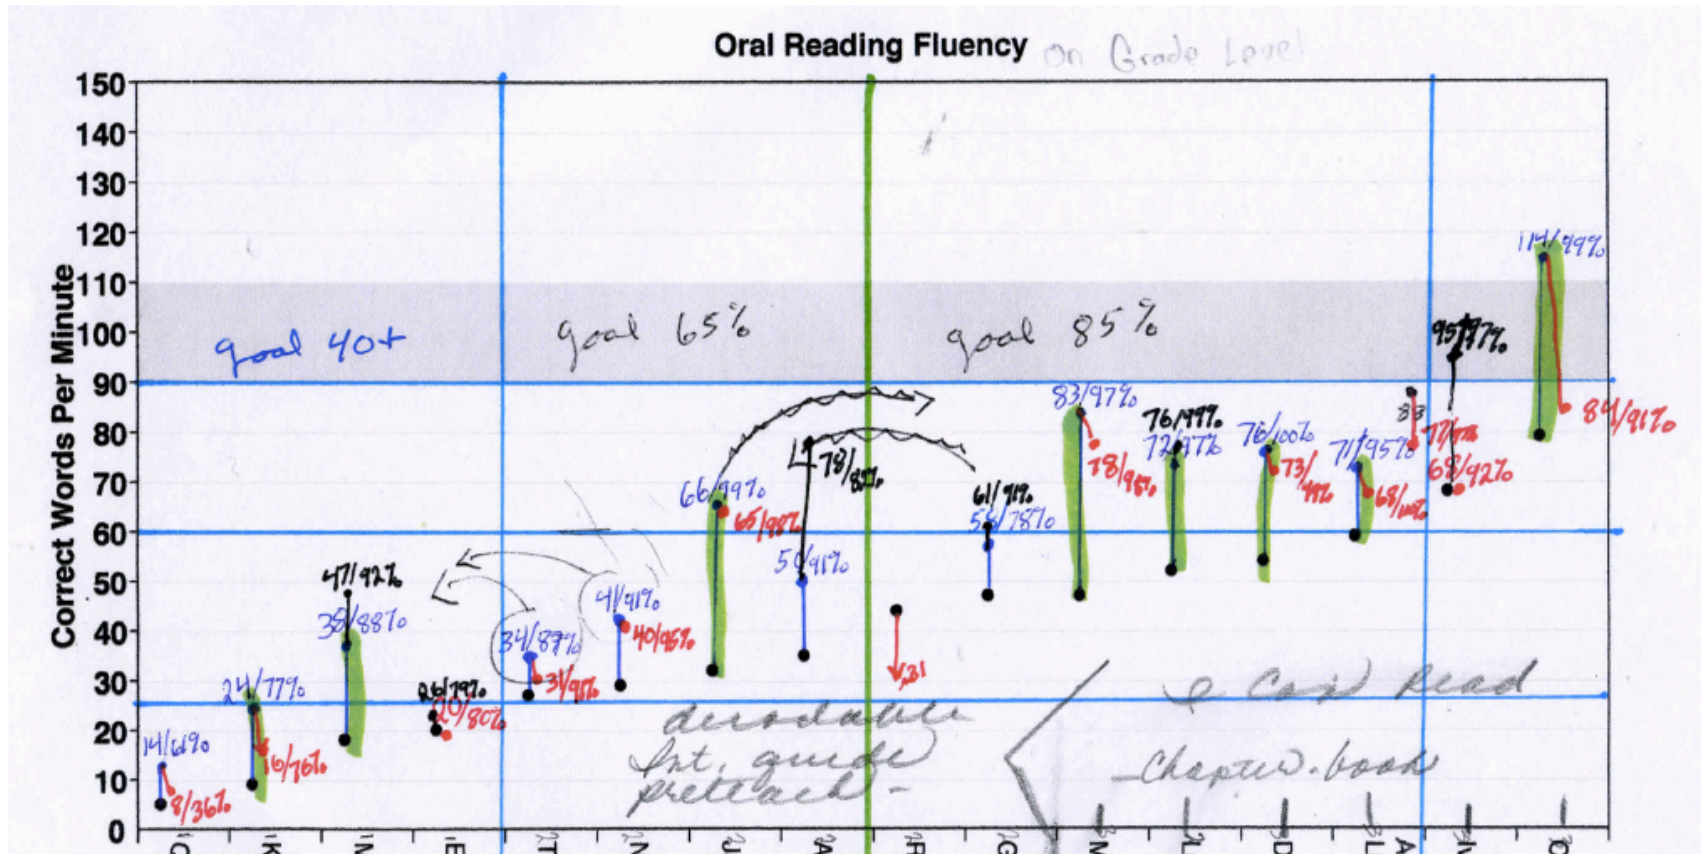 Oral Reading Fluency on Grade Level
Correct Words Per Minute
150
140
130
120
110
100
90
80
70
60
50
40
30
20
10
0
goal 40+
goal 65%
goal 85%
14/61%
8/36%
24/77%
16/76%
47/92%
38/88%
26/79%
20/80%
34/89%
31/91%
41/91%
40/95%
66/99%
65/98%
78/
50/91%
31
61/91%
/78%
83/97%
78/95%
76/99%
72/97%
76/100%
73/99%
71/95%
68/100%
83
77/
95/97%
68/92%
114/99%
84/91%
decodable
Int. guide
preteach -
I Can Read
- Chapter book